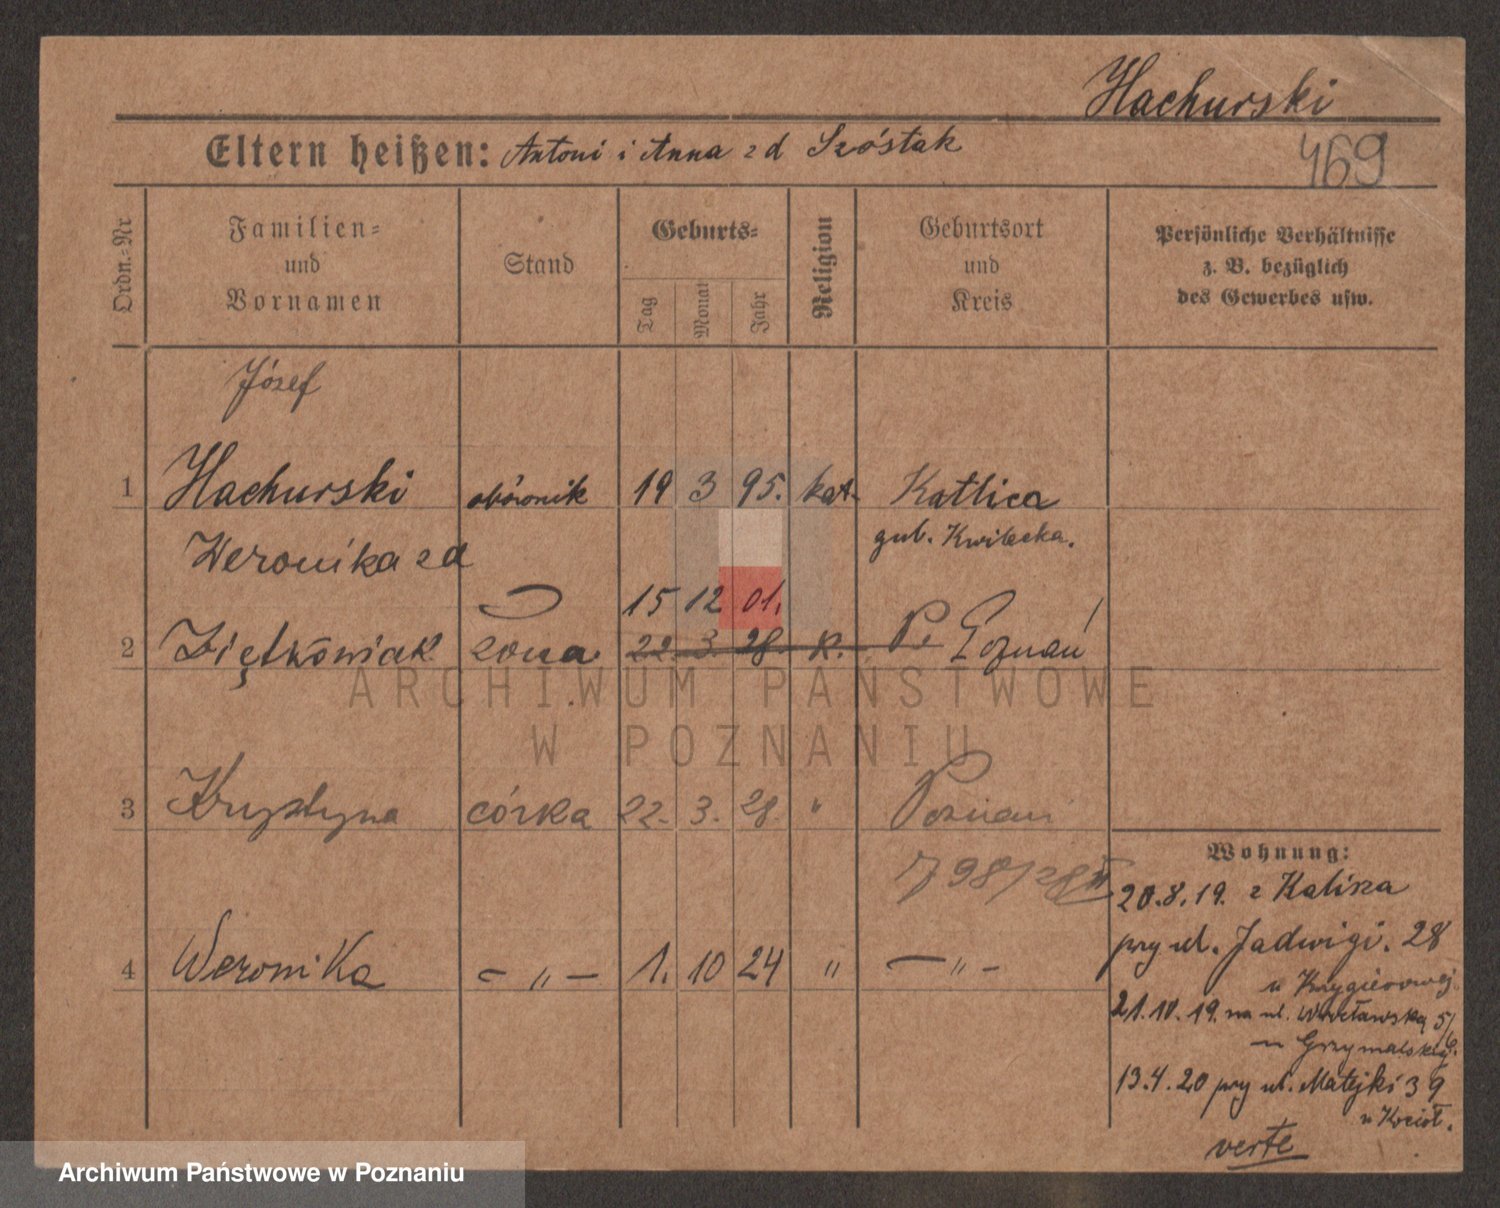 Hachurski
Eltern heißen: Antoni i Anna z d Szóstak
469
Ordn.-Nr
Familien-
und
Vornamen
Stand
Geburts-
Tag
Monat
Jahr
Religion
Geburtsort
und
Kreis
Persönliche Verhältnisse
z. B. bezüglich
des Gewerbes usw.
Józef
1 Hachurski 19 3 95. kat. Katlica
gub.
Weronika z d
15 12 01.
2 żona 22. 3. 28. k. P. Poznań
ARCHIWUM PAŃSTWOWE
W POZNANIU
3 Krystyna córka 22. 3. 28. " Poznań
798/28 II
4 Weronika — " — 1. 10 24 " — " —
Wohnung:
20.8.19. z Kalisza
przy ul. Jadwigi. 28
21.10.19. na ul. Wrocławską 5/6.
u Grzymalskiej
13.4.20 przy ul. Matejki 39
verte
Archiwum Państwowe w Poznaniu